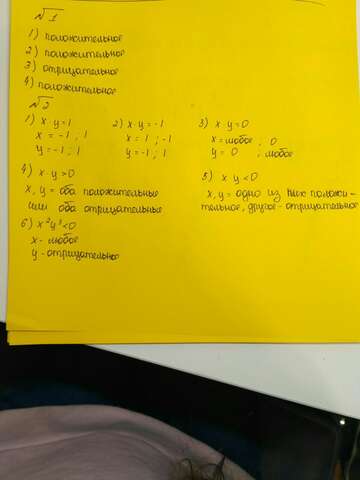 №1
1) положительное
2) положительное
3) отрицательное
4) положительное
№2
1) x·y=1
x = -1 ; 1
y = -1 ; 1
2) x·y=-1
x = 1 ; -1
y = -1 ; 1
3) x·y=0
x = любое ; 0
y = 0 ; любое
4) x·y>0
x, y = оба положительные
или оба отрицательные
5) x·y<0
x, y = одно из них положи-
тельное, другое - отрицательное
6) x²y³<0
x - любое
y - отрицательное